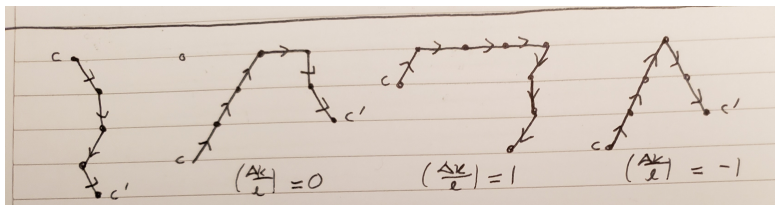 c
c'
c
c'
(Δk/l) = 0
c
(Δk/l) = 1
c
c'
(Δk/l) = -1